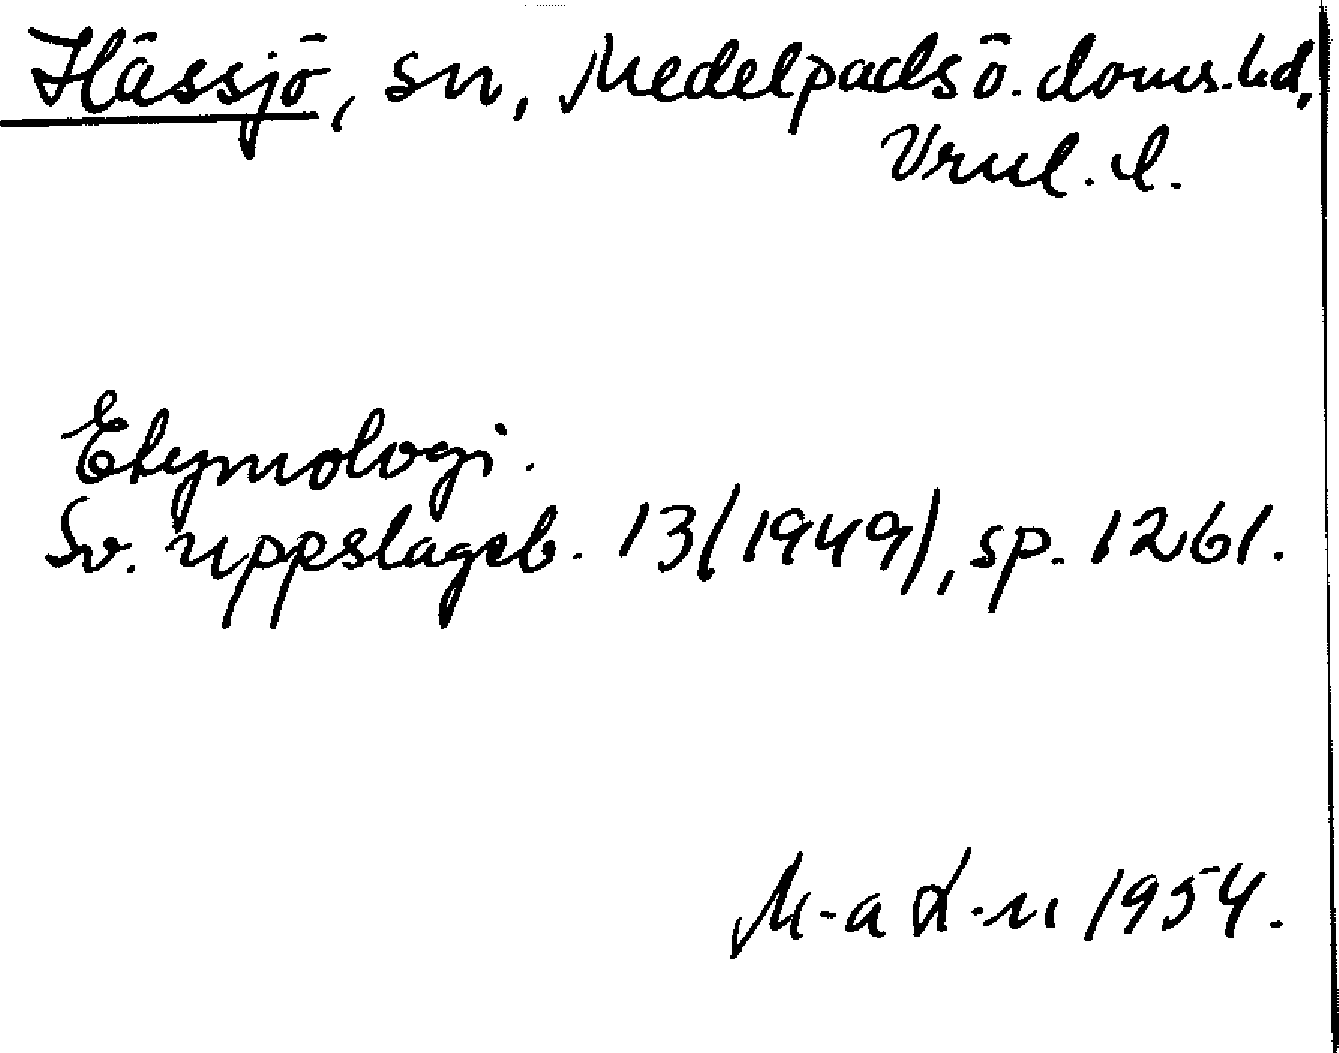 Hässjö, sn, Medelpads ö. doms.hd,
Vrnl. l.
Etymologi.
Sv. uppslagsb. 13 (1949), sp. 1261.
M-a 1954.